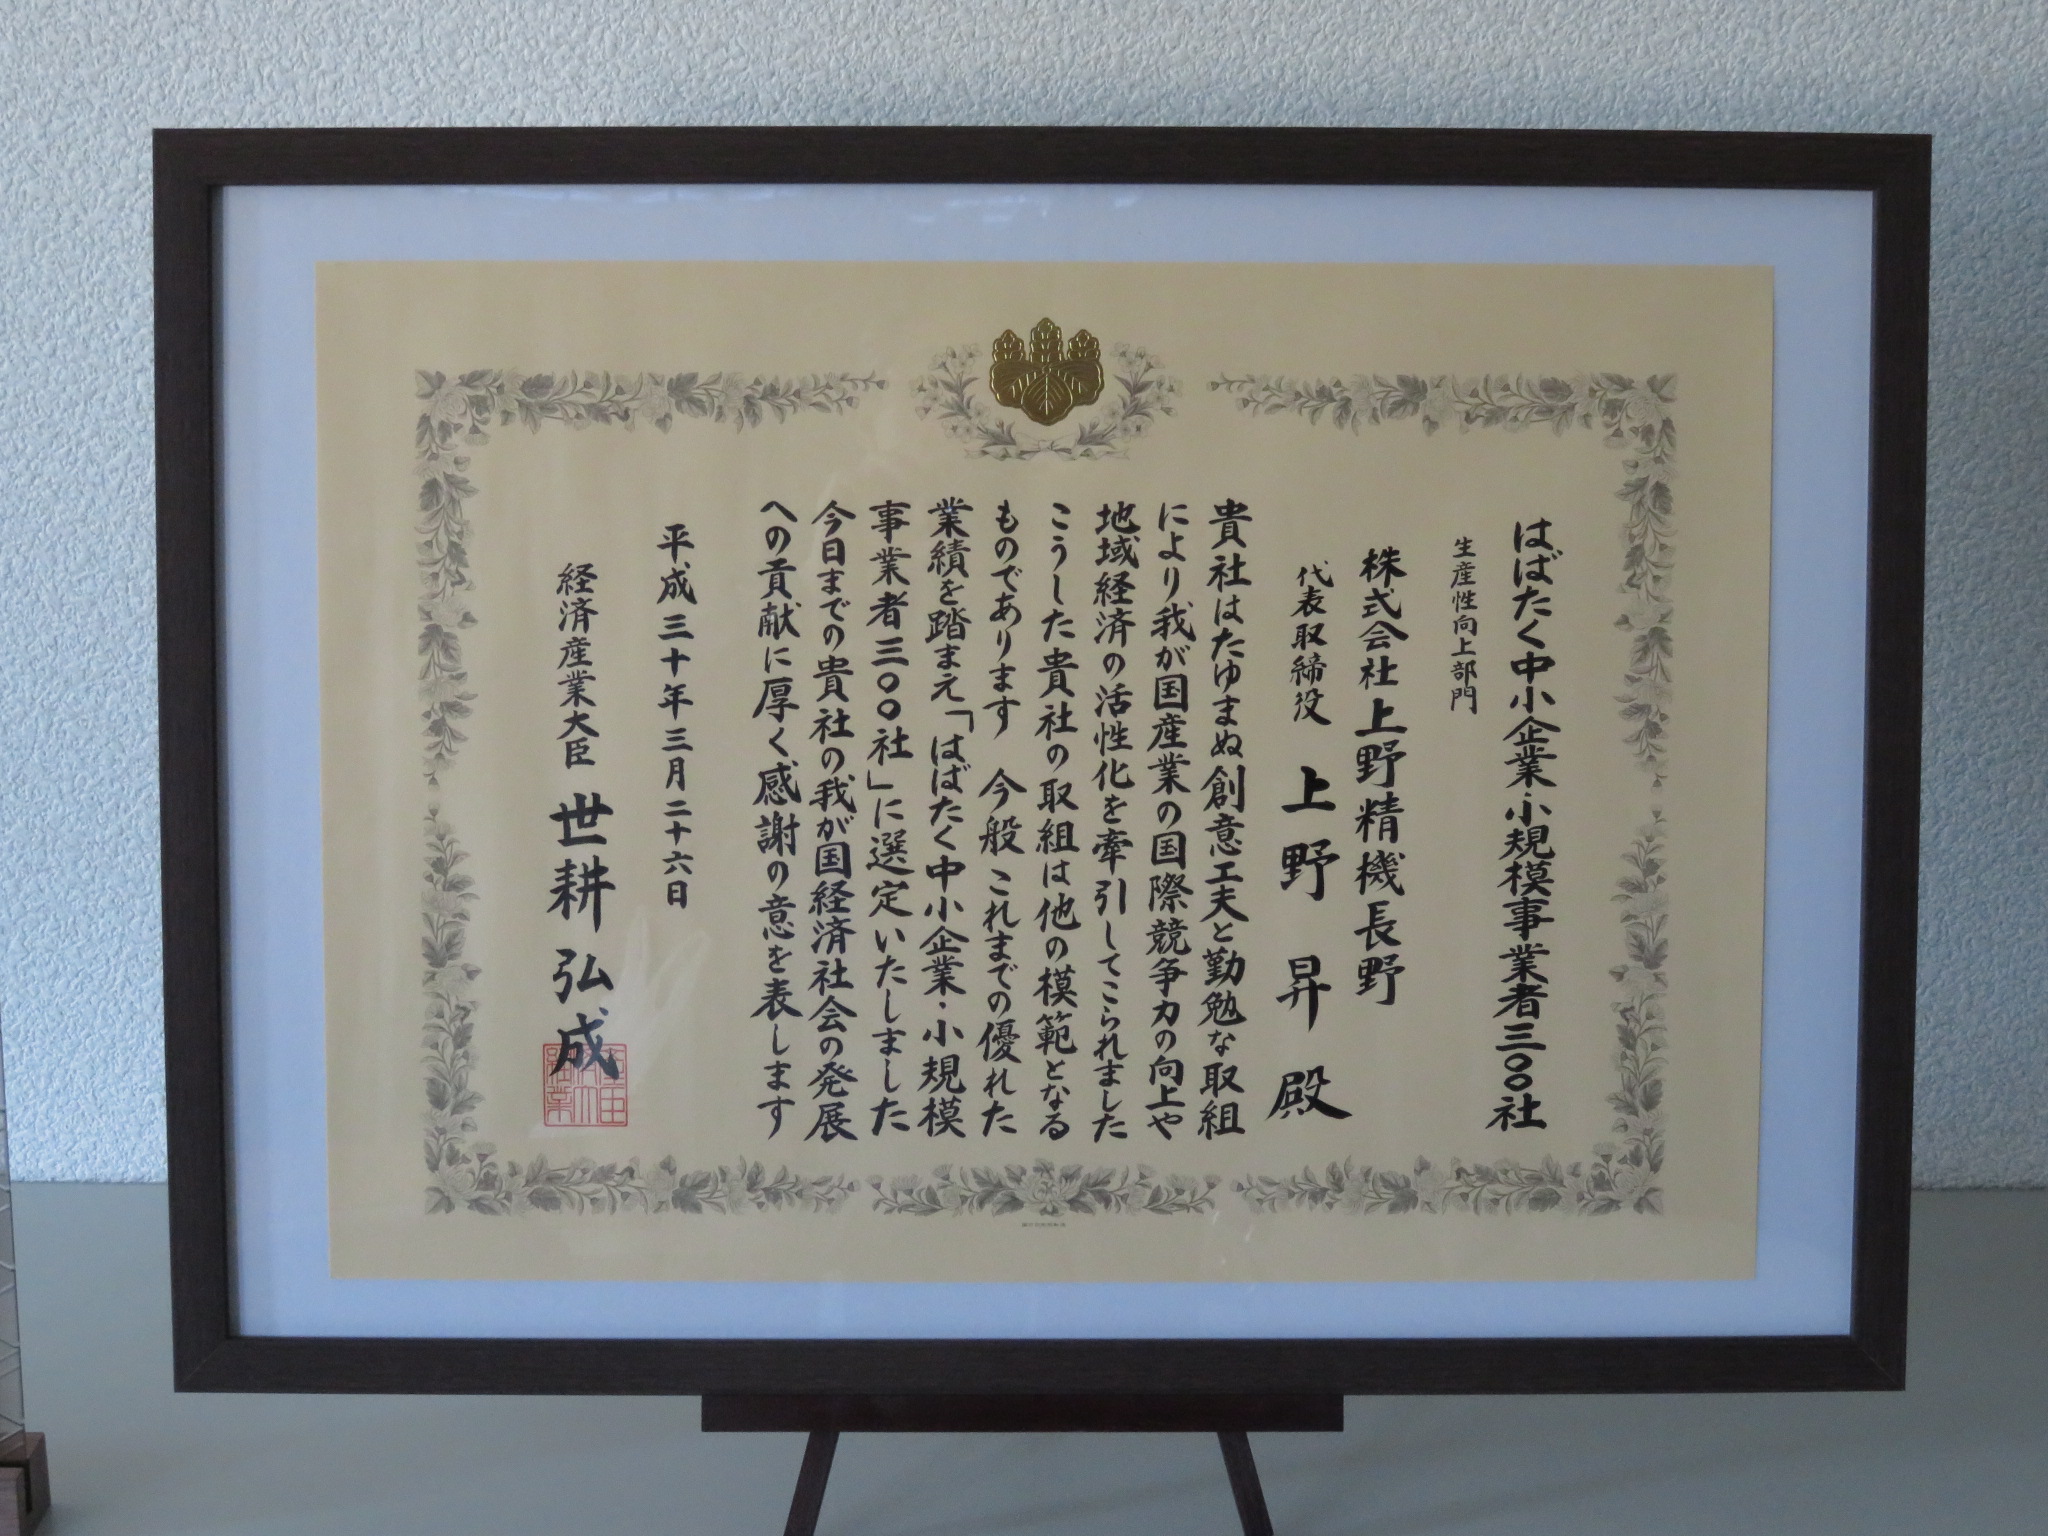 はばたく中小企業・小規模事業者三〇〇社
生産性向上部門
株式会社上野精機長野
代表取締役 上野 昇 殿
貴社はたゆまぬ創意工夫と勤勉な取組
により我が国産業の国際競争力の向上や
地域経済の活性化を牽引してこられました
こうした貴社の取組は他の模範となる
ものであります 今般これまでの優れた
業績を踏まえ「はばたく中小企業・小規模
事業者三〇〇社」に選定いたしました
今日までの貴社の我が国経済社会の発展
への貢献に厚く感謝の意を表します
平成三十年三月二十六日
経済産業大臣 世耕弘成